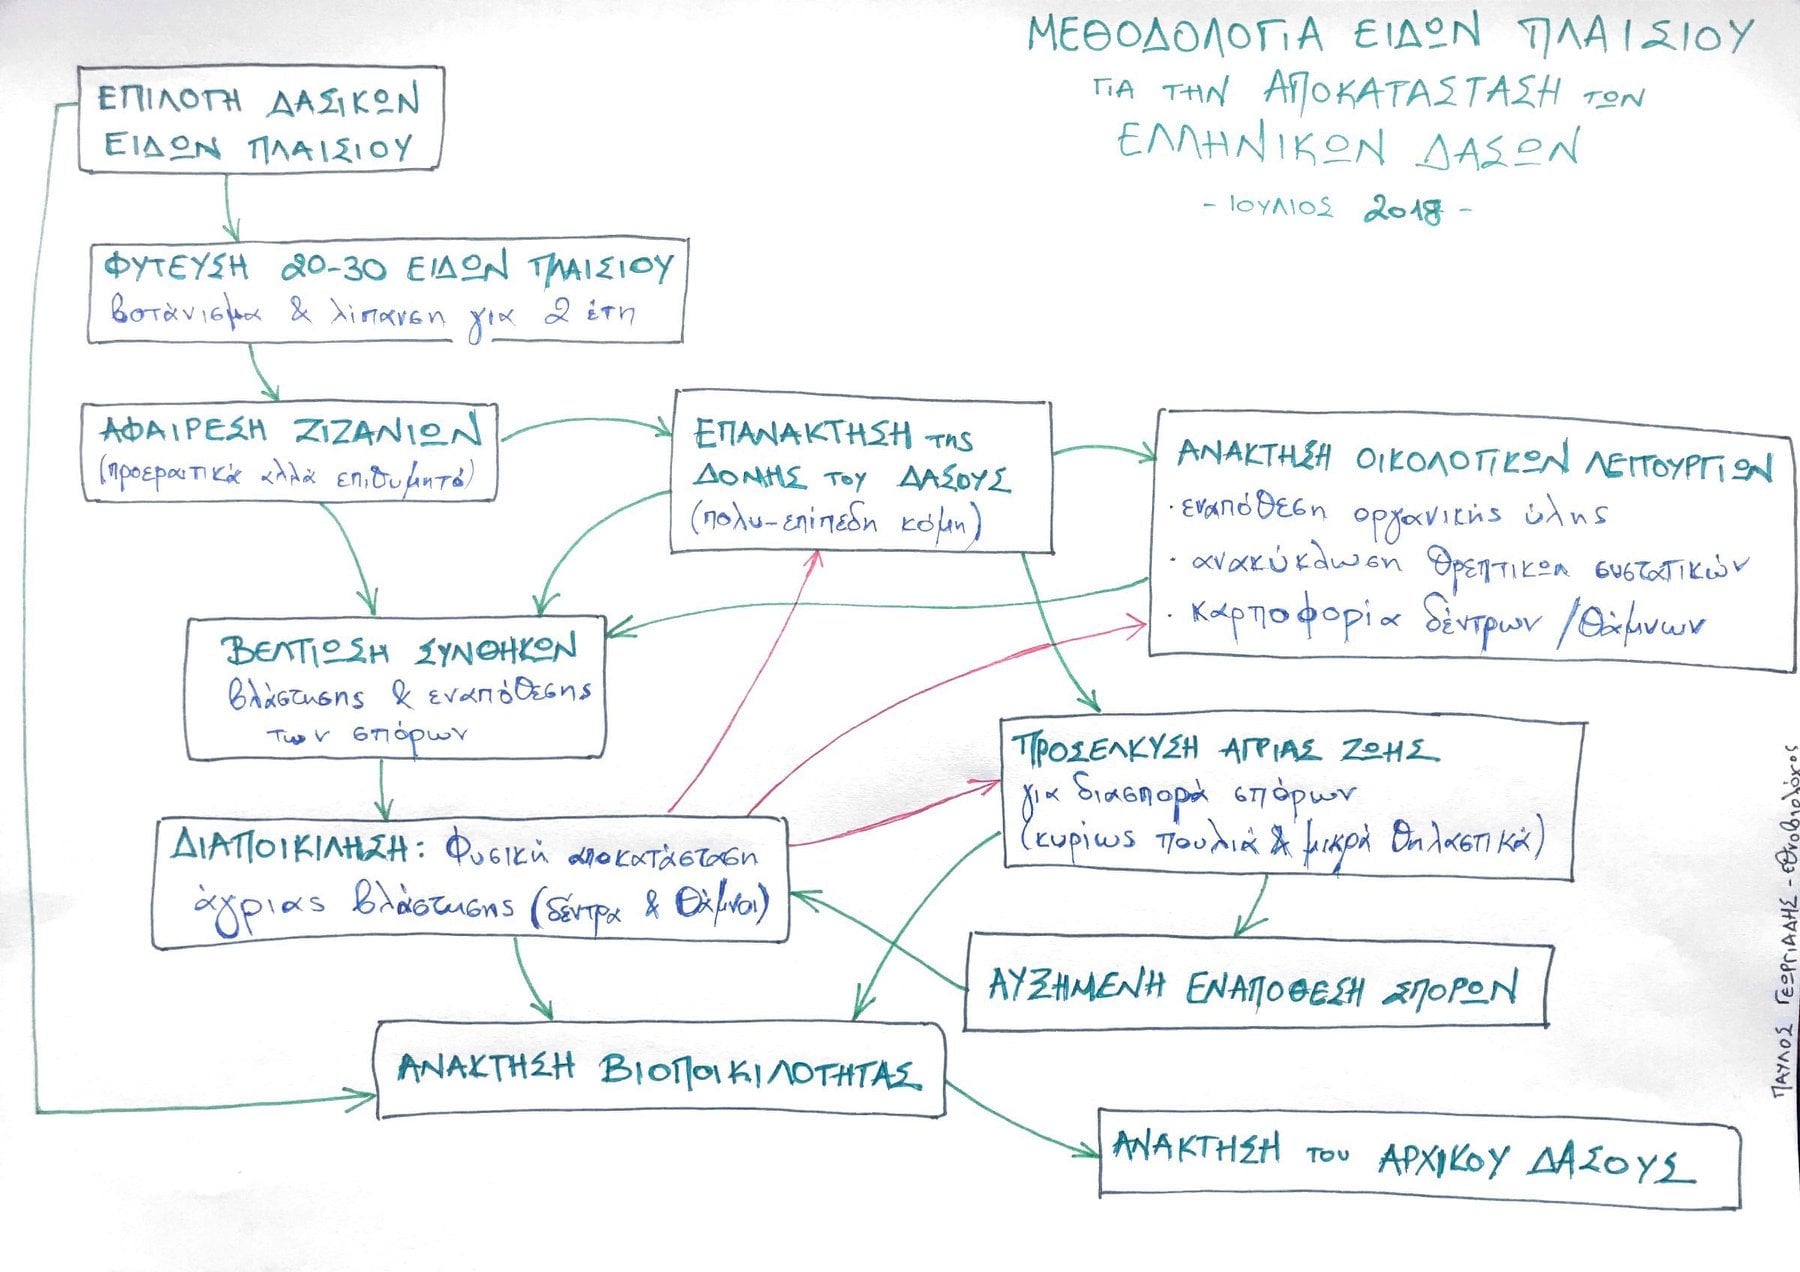 ΜΕΘΟΔΟΛΟΓΙΑ ΕΙΔΩΝ ΠΛΑΙΣΙΟΥ
ΓΙΑ ΤΗΝ ΑΠΟΚΑΤΑΣΤΑΣΗ ΤΩΝ
ΕΛΛΗΝΙΚΩΝ ΔΑΣΩΝ
- ΙΟΥΛΙΟΣ 2018 -
ΕΠΙΛΟΓΗ ΔΑΣΙΚΩΝ
ΕΙΔΩΝ ΠΛΑΙΣΙΟΥ
ΦΥΤΕΥΣΗ 20-30 ΕΙΔΩΝ ΠΛΑΙΣΙΟΥ
βοτάνισμα & λίπανση για 2 έτη
ΑΦΑΙΡΕΣΗ ΖΙΖΑΝΙΩΝ
(προεραιτικά αλλά επιθυμητά)
ΕΠΑΝΑΚΤΗΣΗ της
ΔΟΜΗΣ του ΔΑΣΟΥΣ
(πολυ-επίπεδη κόμη)
ΑΝΑΚΤΗΣΗ ΟΙΚΟΛΟΓΙΚΩΝ ΛΕΙΤΟΥΡΓΙΩΝ
· εναπόθεση οργανικής ύλης
· ανακύκλωση θρεπτικων συστατικών
· καρποφορία δέντρων / θάμνων
ΒΕΛΤΙΩΣΗ ΣΥΝΘΗΚΩΝ
βλάστησης & εναπόθεσης
των σπόρων
ΠΡΟΣΕΛΚΥΣΗ ΑΓΡΙΑΣ ΖΩΗΣ
για διασπορά σπόρων
(κυρίως πουλιά & μικρά θηλαστικά)
ΔΙΑΠΟΙΚΙΛΗΣΗ: Φυσική αποκατάσταση
άγριας βλάστησης (δέντρα & θάμνοι)
ΑΥΞΗΜΕΝΗ ΕΝΑΠΟΘΕΣΗ ΣΠΟΡΩΝ
ΑΝΑΚΤΗΣΗ ΒΙΟΠΟΙΚΙΛΟΤΗΤΑΣ
ΑΝΑΚΤΗΣΗ του ΑΡΧΙΚΟΥ ΔΑΣΟΥΣ
ΠΑΥΛΟΣ ΓΕΩΡΓΙΑΔΗΣ - εθνοβιολόγος